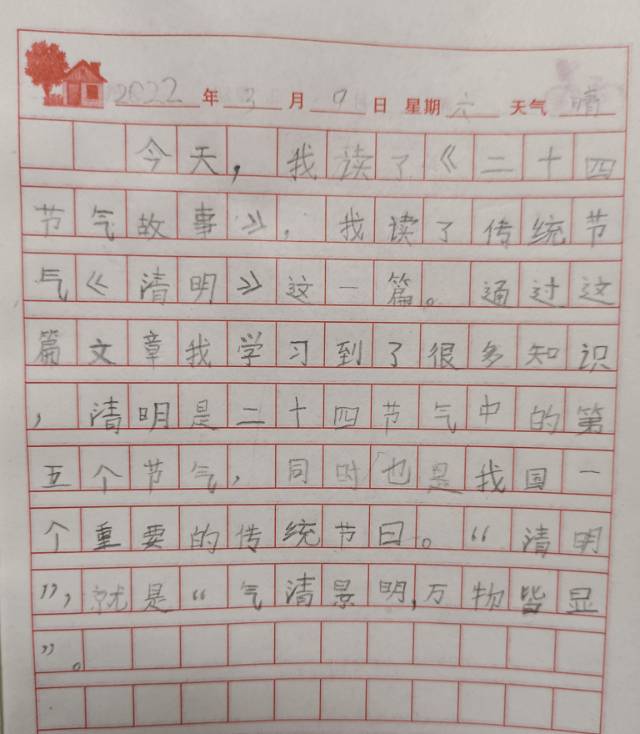 2022年3月9日 星期六 天气晴
今天，我读了《二十四
节气故事》，我读了传统节
气《清明》这一篇。通过这
篇文章我学习到了很多知识
，清明是二十四节气中的第
五个节气，同时也是我国一
个重要的传统节日。“清明
”，就是“气清景明，万物皆显
”。